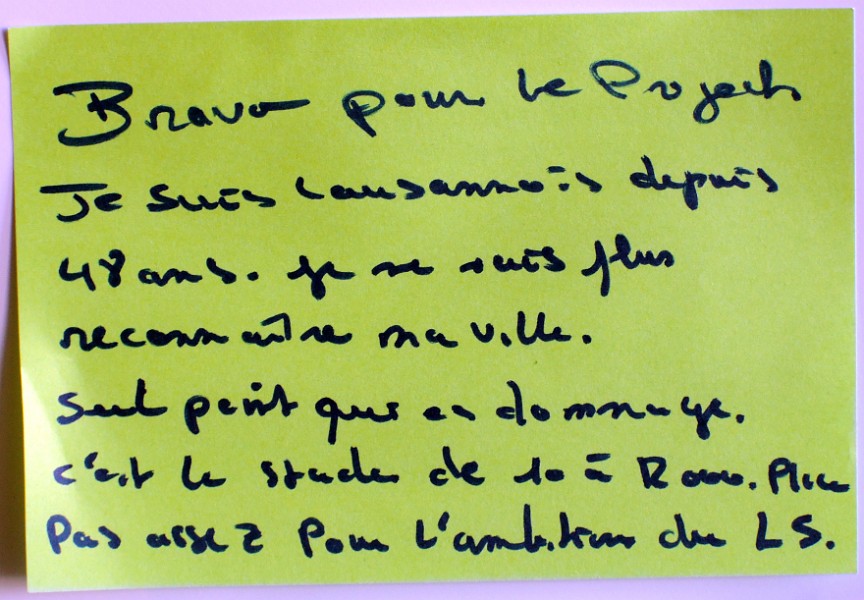 Bravo pour le Projects
Je suis Lausannois depuis
48 ans. je ne suis plus
reconnaître ma ville.
Seul point que es dommage.
c'est le stade de 10 à 12000. Place
Pas assez Pour L'ambition du LS.